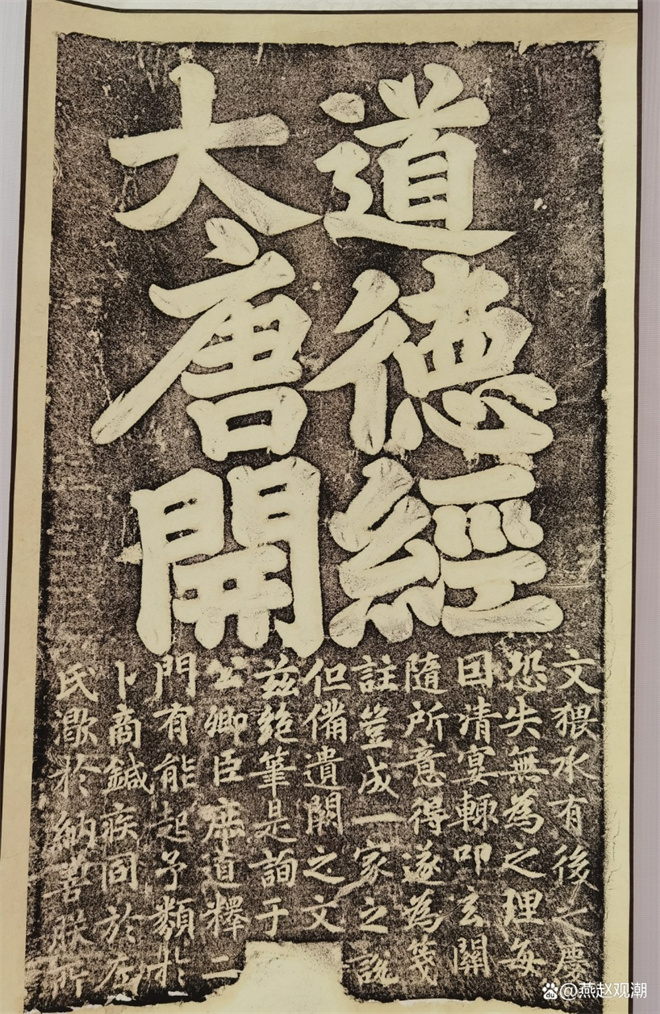 道德經
大唐開
文猥承有後之慶
恐失無為之理每
因清宴輙叩玄關
隨所意得遂為箋
註豈成一家之說
但備遺闕之文
兹絶筆是詢于
公卿臣庶道釋二
門有能起予類於
卜商鍼疾同於左
氏渴於納善朕所
@燕赵观潮